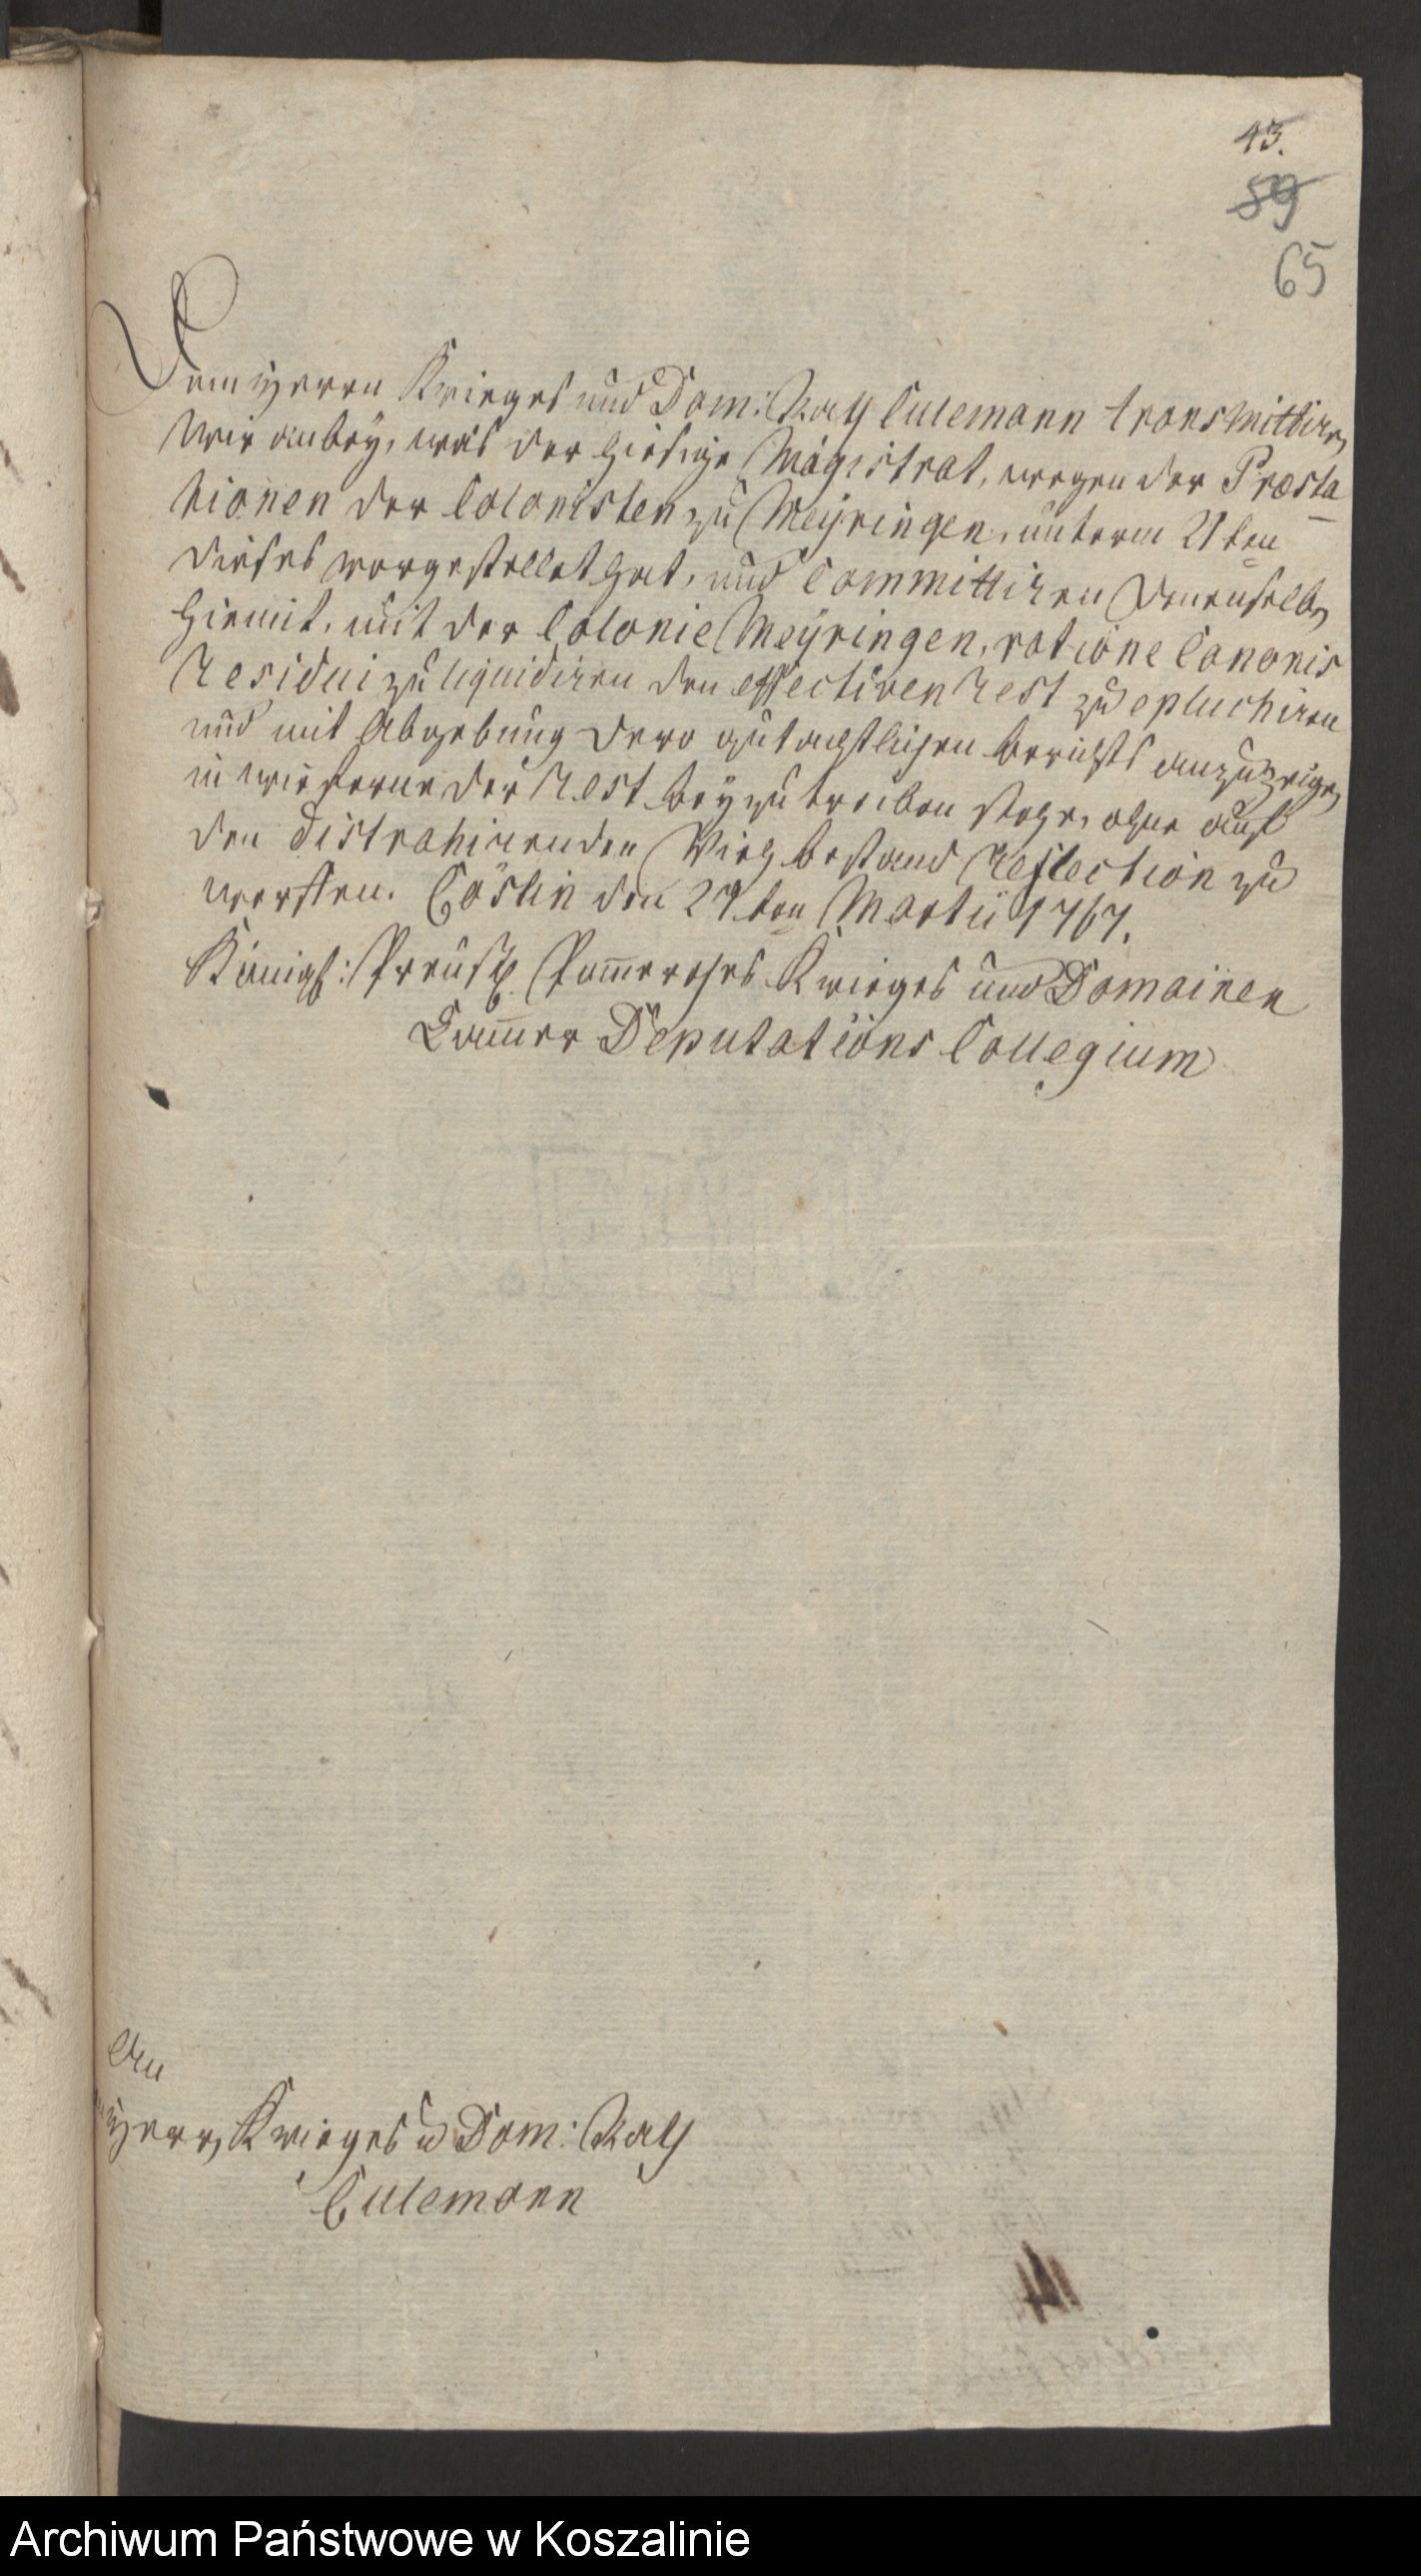 43.
59
65
Dem Herrn Krieges und Dom: Rath Culemann transmittiren
Wir anbey, was der hiesige Magistrat, wegen der Præsta
tionen der Colonisten zu Meyringen, unterm 21ten
dieses vorgestellet hat, und Committiren Denenselben
hiemit, mit der Colonie Meyringen, ratione Canonis
Residui zu liquidiren den effectiven Rest zu epluchiren
und mit Abgebung dero gutachtlichen berichts anzuzeigen
in wieferne der Rest beyzutreiben stehe, ohne auf
den distrahirenden Viehbestand Reflection zu
werffen. Cöslin den 27ten Martii 1767.
Königl: Preuß. Pommersches Krieges und Domainen
Cammer Deputations Collegium
An
Herrn Krieges u Dom: Rath
Culemann
Archiwum Państwowe w Koszalinie